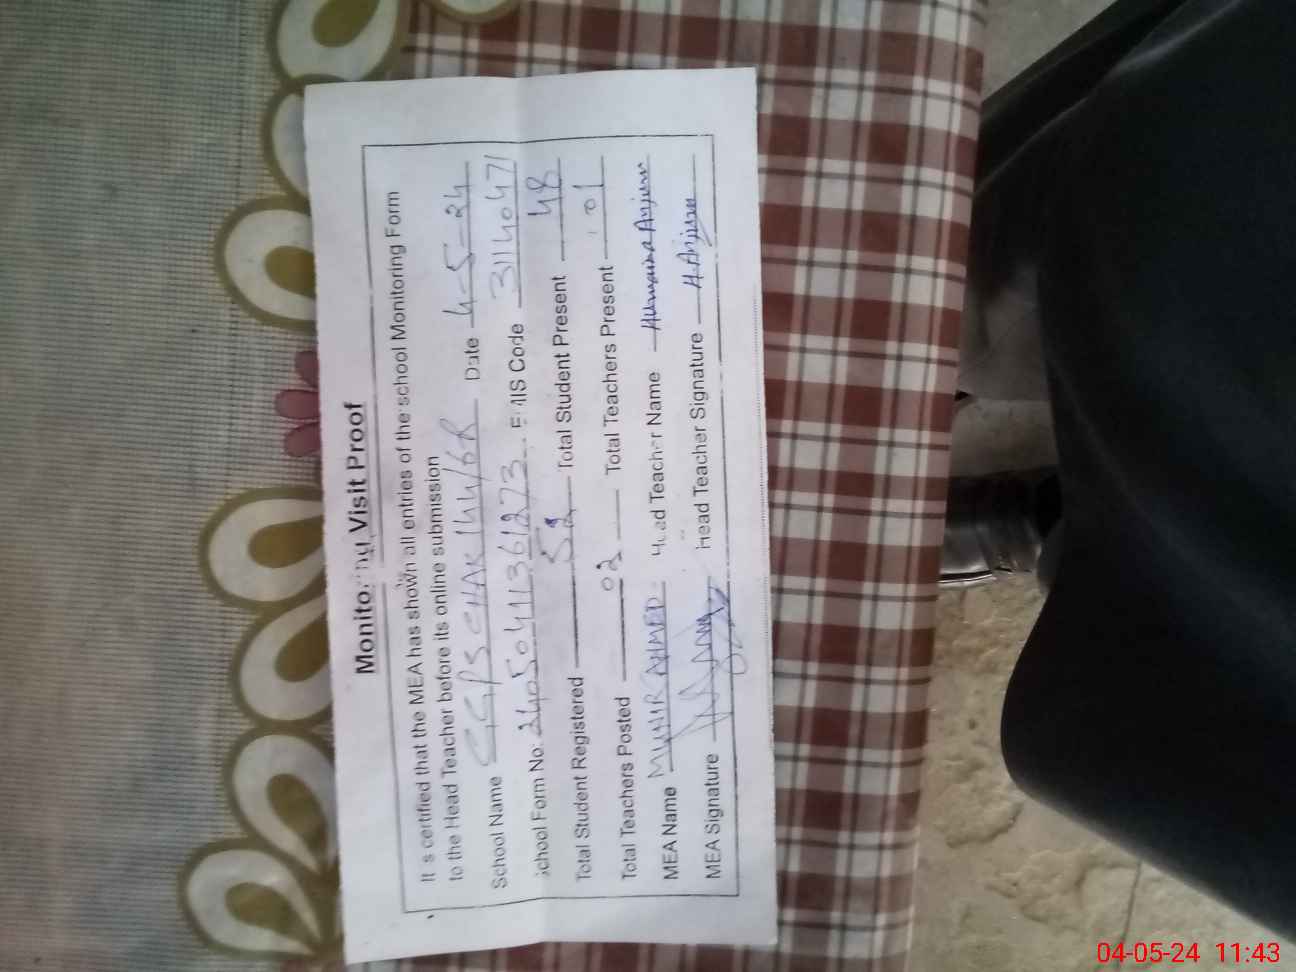 Monitoring Visit Proof
It is certified that the MEA has shown all entries of the school Monitoring Form
to the Head Teacher before its online submission
School Name GGPS CHAK 144/6R Date 4-5-24
School Form No: 2405041136 1273 EMIS Code 31140471
Total Student Registered 52 Total Student Present 48
Total Teachers Posted 02 Total Teachers Present 01
MEA Name MUNIR AHMED Head Teacher Name Humaira Anjum
MEA Signature Head Teacher Signature H.Anjum
04-05-24 11:43